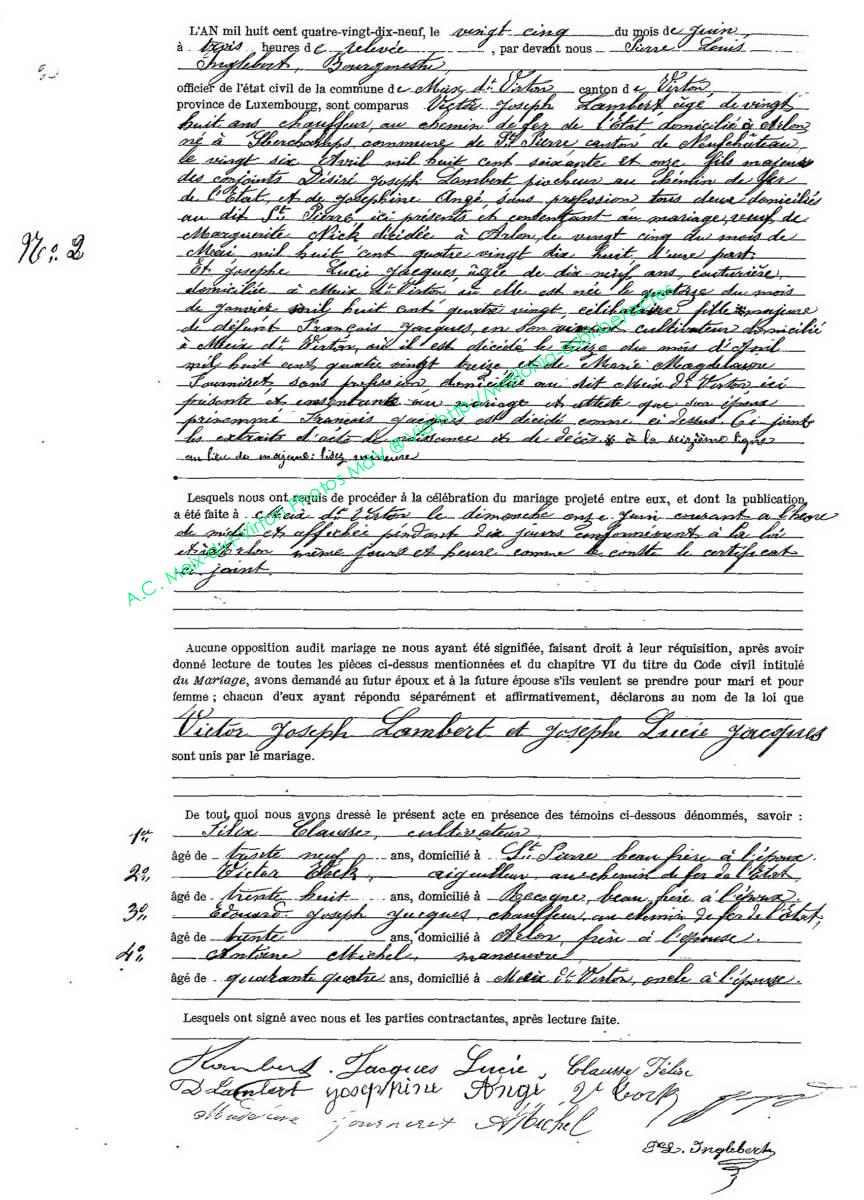 L'AN mil huit cent quatre-vingt-dix-neuf, le vingt cinq du mois de juin,
à trois heures de relevée, par devant nous Pierre Louis
Inglebert, Bourgmestre,
officier de l'état civil de la commune de Meix dt Virton canton de Virton,
province de Luxembourg, sont comparus Victor Joseph Lambert âgé de vingt
huit ans chauffeur, au chemin de fer de l'Etat domicilié à Arlon
né à commune de St Pierre canton de Neufchâteau,
le vingt six Avril mil huit cent soixante et onze, fils majeur
des conjoints Désiré Joseph Lambert piocheur au chemin de fer
de l'Etat, et de Joséphine Angé sans profession tous deux domiciliés
au dit St Pierre ici présents et consentant au mariage, veuf de
Marguerite Nick décédée à Arlon, le vingt cinq du mois de
No 2
Mai mil huit cent quatre vingt dix huit, d'une part.
Et Josephe Lucie Jacques âgée de dix neuf ans, couturière,
domiciliée à Meix dt Virton où elle est née le quatorze du mois
de janvier mil huit cent quatre vingt, célibataire fille * majeure
de défunt François Jacques, en son cultivateur domicilié
à Meix dt Virton, où il est décédé le treize du mois d'Avril
mil huit cent quatre vingt treize et de Marie Magdeleine
Fourniret sans profession domiciliée au dit Meix dt Virton ici
présente et consentante au mariage et atteste que son époux
prénommé François Jacques est décédé comme ci dessus. Ci joint
les extraits d'acte de naissance et de décès * à la seizième ligne
au lieu de majeure : lisez mineure
Lesquels nous ont requis de procéder à la célébration du mariage projeté entre eux, et dont la publication
a été faite à Meix dt Virton le dimanche onze juin courant à l'heure
de midi et affichée pendant dix jours conformément à la loi
et à Arlon même jour et heure comme le conste le certificat
ci joint.
Aucune opposition audit mariage ne nous ayant été signifiée, faisant droit à leur réquisition, après avoir
donné lecture de toutes les pièces ci-dessus mentionnées et du chapitre VI du titre du Code civil intitulé
du Mariage, avons demandé au futur époux et à la future épouse s'ils veulent se prendre pour mari et pour
femme ; chacun d'eux ayant répondu séparément et affirmativement, déclarons au nom de la loi que
Victor Joseph Lambert et Josephe Lucie Jacques
sont unis par le mariage.
De tout quoi nous avons dressé le présent acte en présence des témoins ci-dessous dénommés, savoir :
1er Félix Clausse, cultivateur
âgé de trente neuf ans, domicilié à St Pierre beau frère à l'époux.
2o Victor aiguilleur au chemin de fer de l'Etat,
âgé de trente huit ans, domicilié à Recogne, beau frère à l'époux
3o Edouard Joseph Jacques, chauffeur, au chemin de fer de l'Etat,
âgé de trente ans, domicilié à Arlon, frère à l'épouse.
4o Antoine Michel, manoeuvre,
âgé de quarante quatre ans, domicilié à Meix dt Virton, oncle à l'épouse.
Lesquels ont signé avec nous et les parties contractantes, après lecture faite.
Lambert. Jacques Lucie, Clausse Félix
D Lambert Joséphine Angé
Madeleine Fourniret A Michel
P.L. Inglebert
A.C. Meix-dvt-Virton Photos MdV ® Via http://wallonia-asbl.be/actes